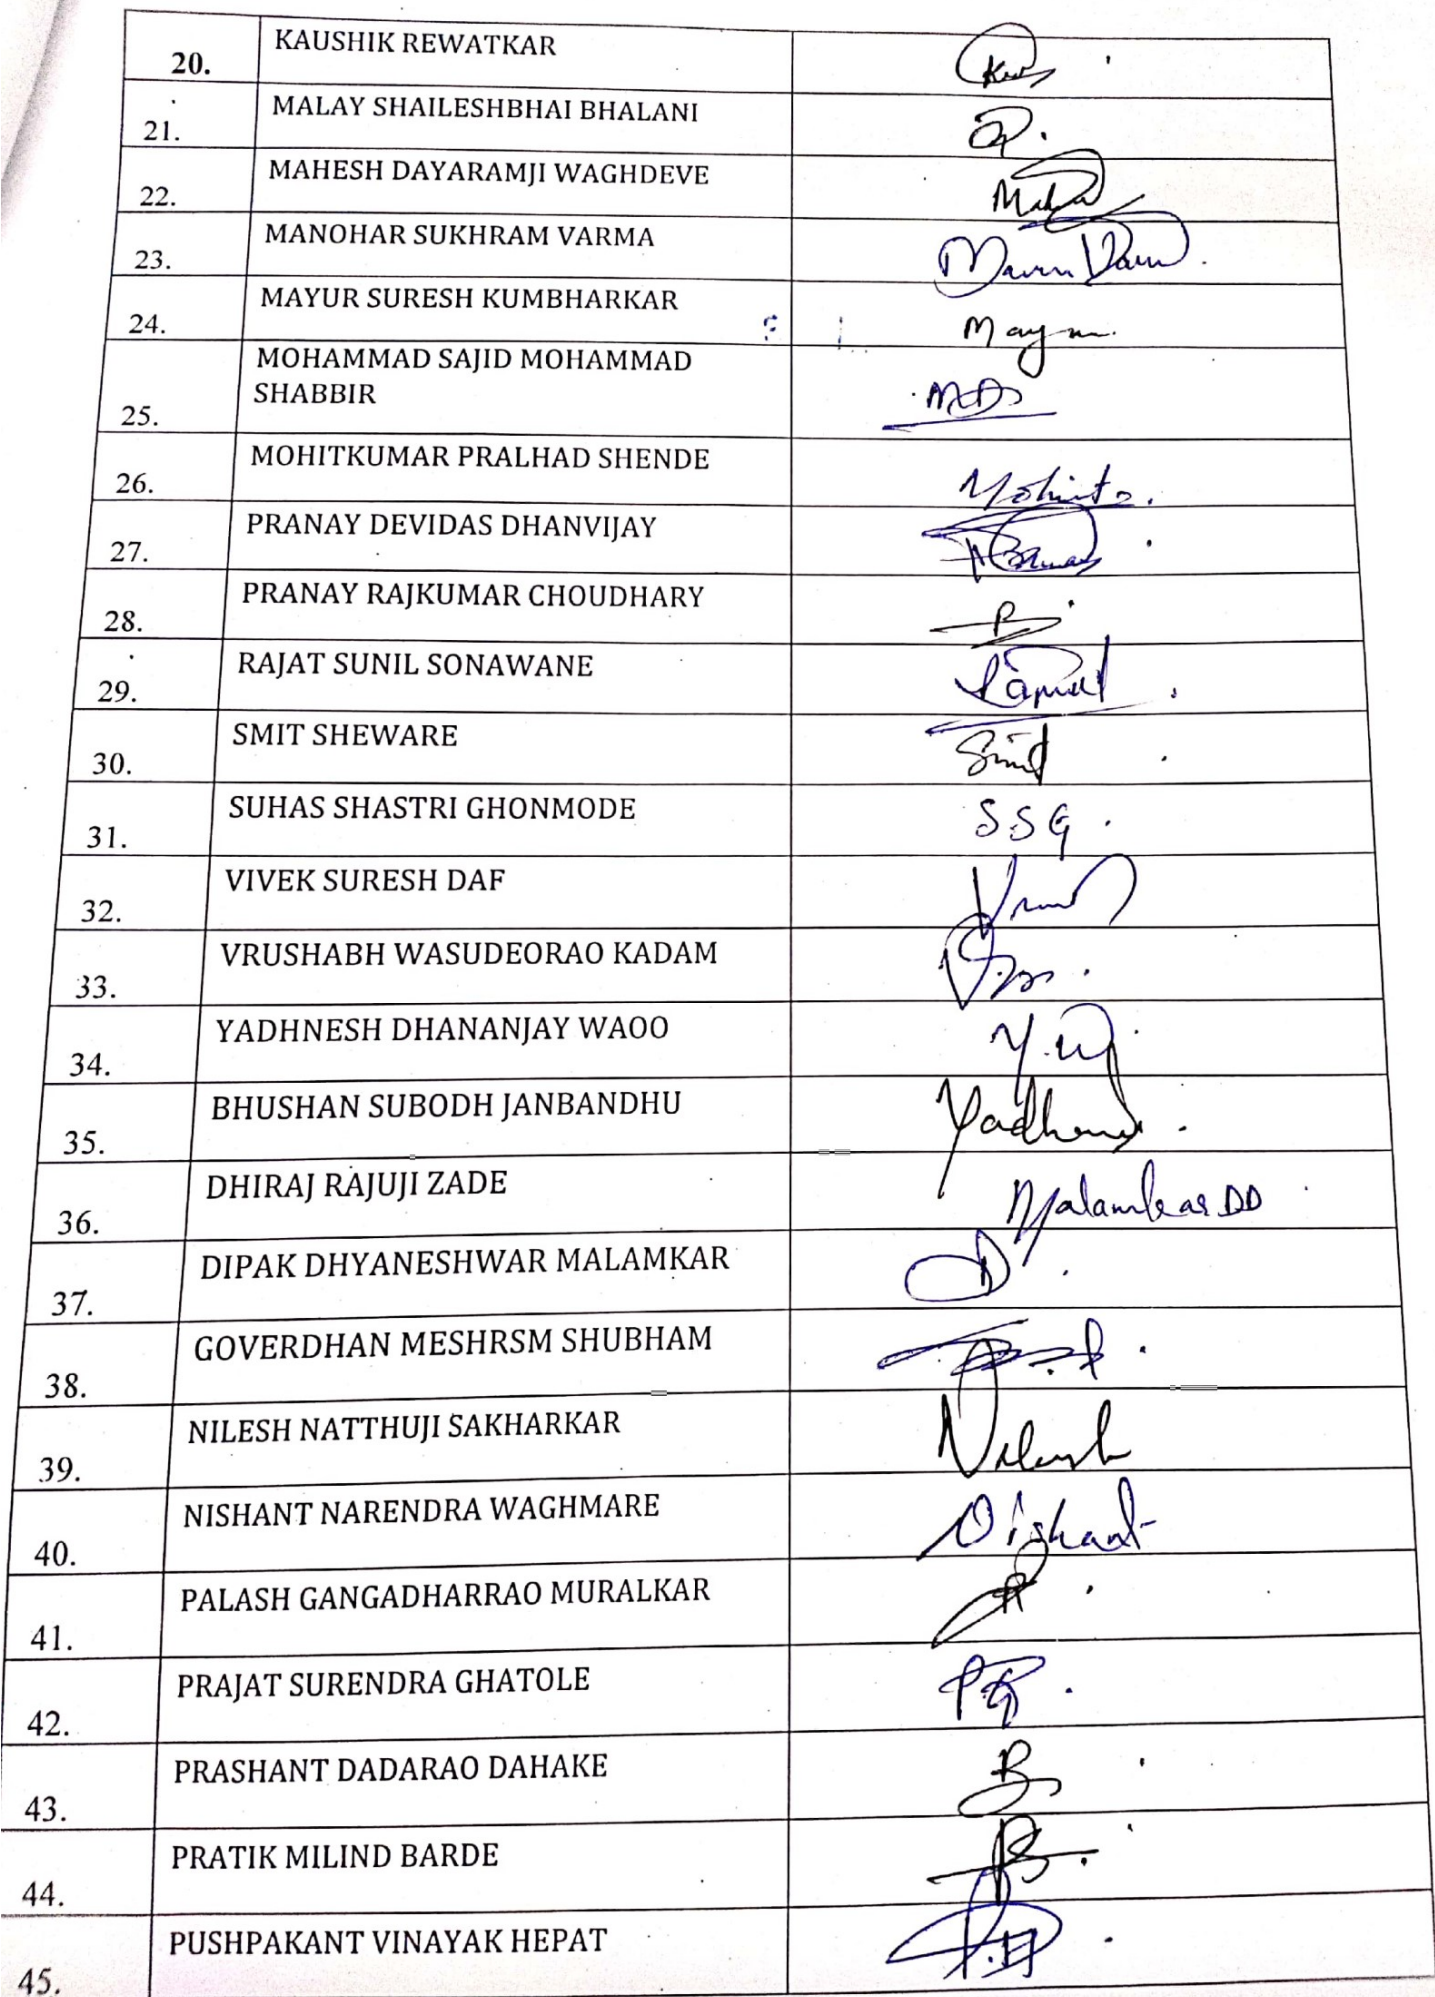 20. KAUSHIK REWATKAR
21. MALAY SHAILESHBHAI BHALANI
22. MAHESH DAYARAMJI WAGHDEVE
23. MANOHAR SUKHRAM VARMA
24. MAYUR SURESH KUMBHARKAR
MOHAMMAD SAJID MOHAMMAD
25. SHABBIR MDS
26. MOHITKUMAR PRALHAD SHENDE
27. PRANAY DEVIDAS DHANVIJAY
28. PRANAY RAJKUMAR CHOUDHARY
29. RAJAT SUNIL SONAWANE
30. SMIT SHEWARE Smit
31. SUHAS SHASTRI GHONMODE SSG
32. VIVEK SURESH DAF
33. VRUSHABH WASUDEORAO KADAM
34. YADHNESH DHANANJAY WAOO Y.W
35. BHUSHAN SUBODH JANBANDHU
36. DHIRAJ RAJUJI ZADE Malamkar DD
37. DIPAK DHYANESHWAR MALAMKAR
38. GOVERDHAN MESHRSM SHUBHAM
39. NILESH NATTHUJI SAKHARKAR Nilesh
40. NISHANT NARENDRA WAGHMARE Nishant
41. PALASH GANGADHARRAO MURALKAR
42. PRAJAT SURENDRA GHATOLE PG
43. PRASHANT DADARAO DAHAKE
44. PRATIK MILIND BARDE
45. PUSHPAKANT VINAYAK HEPAT